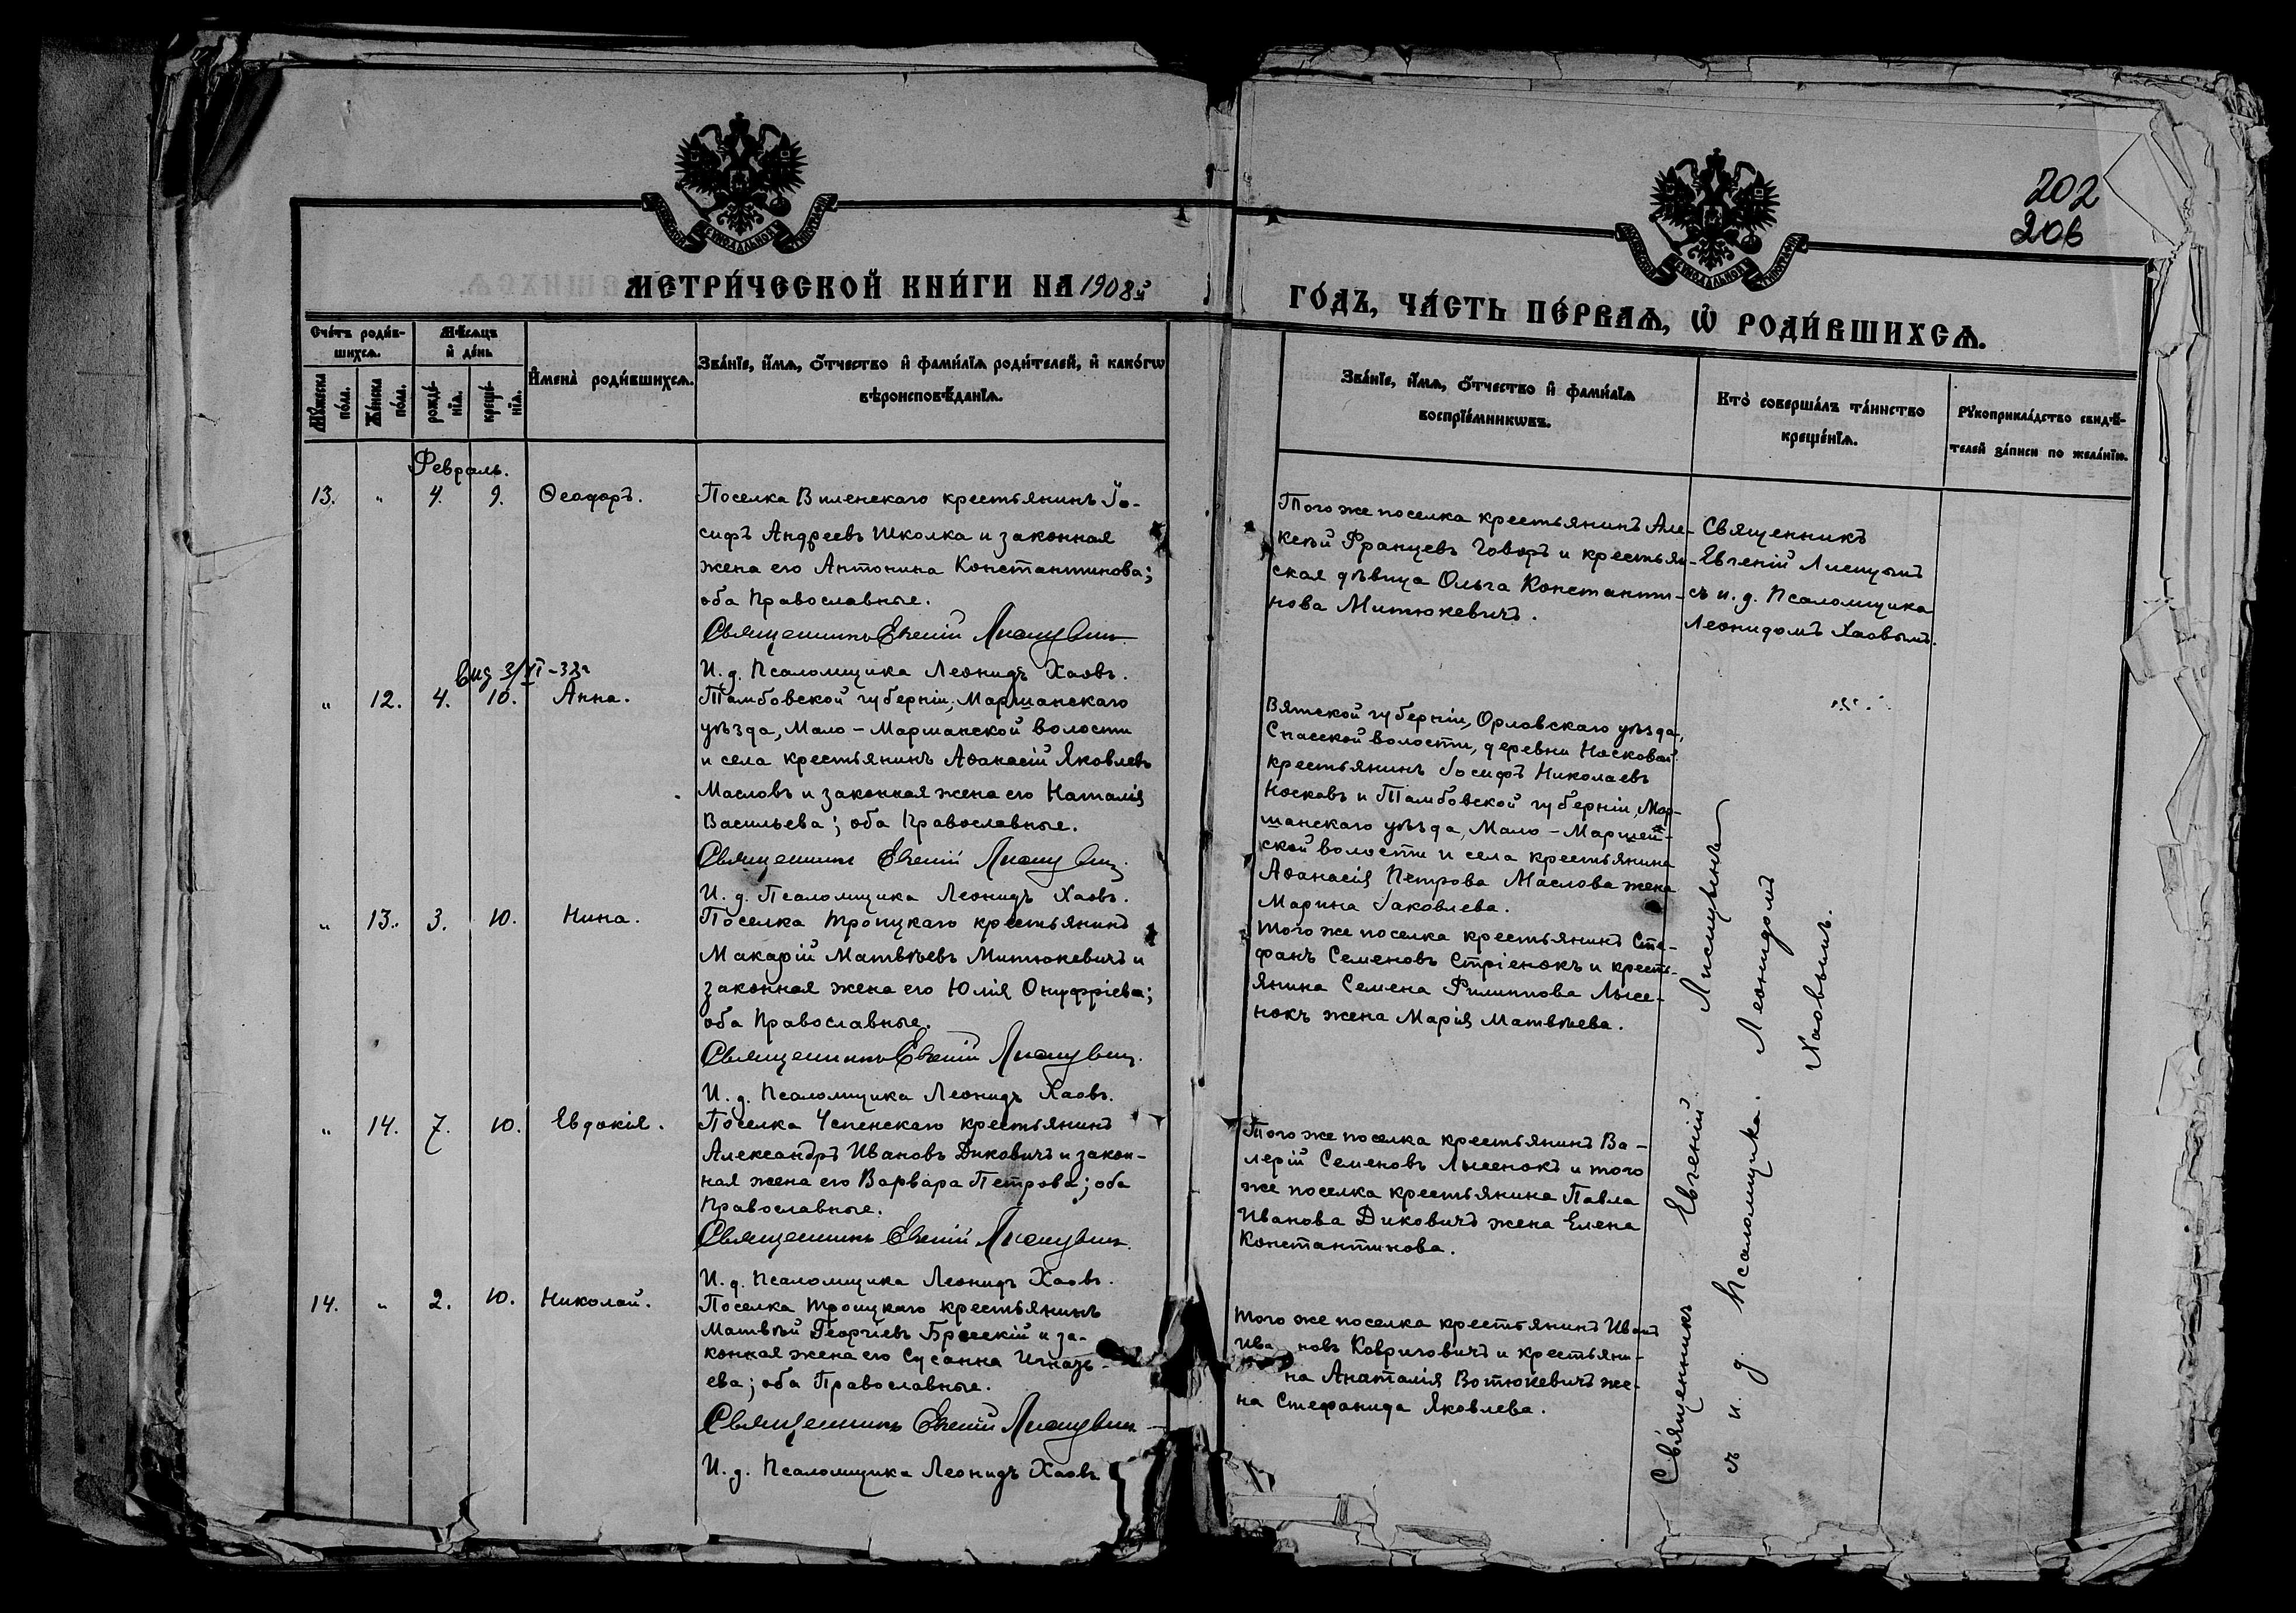 202
206
СѴНОДАЛЬНОЙ
СѴНОДАЛЬНОЙ
МЕТРИ́ЧЕСКОЙ КНИ́ГИ НА 1908й
ГО́ДЪ, ЧА́СТЬ ПЕ́РВАѦ, Ѡ РОДИ́ВШИХСѦ.
Сче́тъ роди́в-
шихсѧ.
Мꙋ́жеска по́ла.
Же́нска по́ла.
Мѣ́сѧцъ
и҆ де́нь
рожде́-
нїѧ.
креще́-
нїѧ.
И҆мена̀ роди́вшихсѧ.
Зва́нїе, и҆́мѧ, ѻ҆́тчество и҆ фами́лїѧ роди́телей, и҆ како́гѡ
вѣроисповѣ́данїѧ.
Зва́нїе, и҆́мѧ, ѻ҆́тчество и҆ фами́лїѧ
воспрїе́мникѡвъ.
Кто̀ соверша́лъ та́инство
креще́нїѧ.
Рꙋкоприкла́дство свидѣ́-
телей за́писи по жела́нїю.
Февраль.
13. " 4. 9. Ѳеодоръ.
Поселка Виленскаго крестьянинъ Іо-
сифъ Андреевъ Школка и законная
жена его Антонина Константинова;
оба Православные.
Священникъ Евгеній
И. д. Псаломщика Леонидъ Хаовъ.
Того же поселка крестьянинъ Але-
ксѣй Францевъ Говоръ и крестьян-
ская дѣвица Ольга Константи-
нова Митюкевичъ.
Священникъ
Евгеній Лисицынъ
съ и. д. Псаломщика
Леонидомъ Хаовымъ.
" 12. 4. 10. Анна.
Тамбовской губерніи, Маршанскаго
уѣзда, Мало-Маршанской волости
и села крестьянинъ Аѳанасій Яковлевъ
Масловъ и законная жена его Наталія
Васильева; оба Православные.
Священникъ Евгеній
И. д. Псаломщика Леонидъ Хаовъ.
Вятской губерніи, Орловскаго уѣзда,
Спасской волости, деревни Носковой
крестьянинъ Іосифъ Николаевъ
Носковъ и Тамбовской губерніи, Мор-
шанскаго уѣзда, Мало-Маршей-
ской волости и села крестьянина
Аѳанасія Петрова Маслова жена
Марина Іаковлева.
" 13. 3. 10. Нина.
Поселка Троицкаго крестьянинъ
Макарій Матвѣевъ Митюкевичъ и
законная жена его Юлія Онуфріева;
оба Православные.
Священникъ Евгеній
И. д. Псаломщика Леонидъ Хаовъ.
Того же поселка крестьянинъ Сте-
фанъ Семеновъ Стріенокъ и кресть-
янина Семена Филиппова Лысе-
нокъ жена Марія Матвѣева.
" 14. 7. 10. Евдокія.
Поселка Чепенскаго крестьянинъ
Александръ Ивановъ Диковичъ и закон-
ная жена его Варвара Петрова; оба
Православные.
Священникъ Евгеній
И. д. Псаломщика Леонидъ Хаовъ.
Того же поселка крестьянинъ Ва-
лерій Семеновъ Лысенокъ и того
же поселка крестьянина Павла
Иванова Диковичъ жена Елена
Константинова.
14. " 2. 10. Николай.
Поселка Троицкаго крестьянинъ
Матвѣй Георгіевъ Бресскій и за-
конная жена его Сусанна Игнать-
ева; оба Православные.
Священникъ Евгеній
И. д. Псаломщика Леонидъ Хаовъ
Того же поселка крестьянинъ Иванъ
Ивановъ Ковриговичъ и крестьяни-
на Анаталія Вотюкевичъ же-
на Стефанида Яковлева.
Священникъ Евгеній Лисицынъ
съ и. д. Псаломщика. Леонидомъ
Хаовымъ.